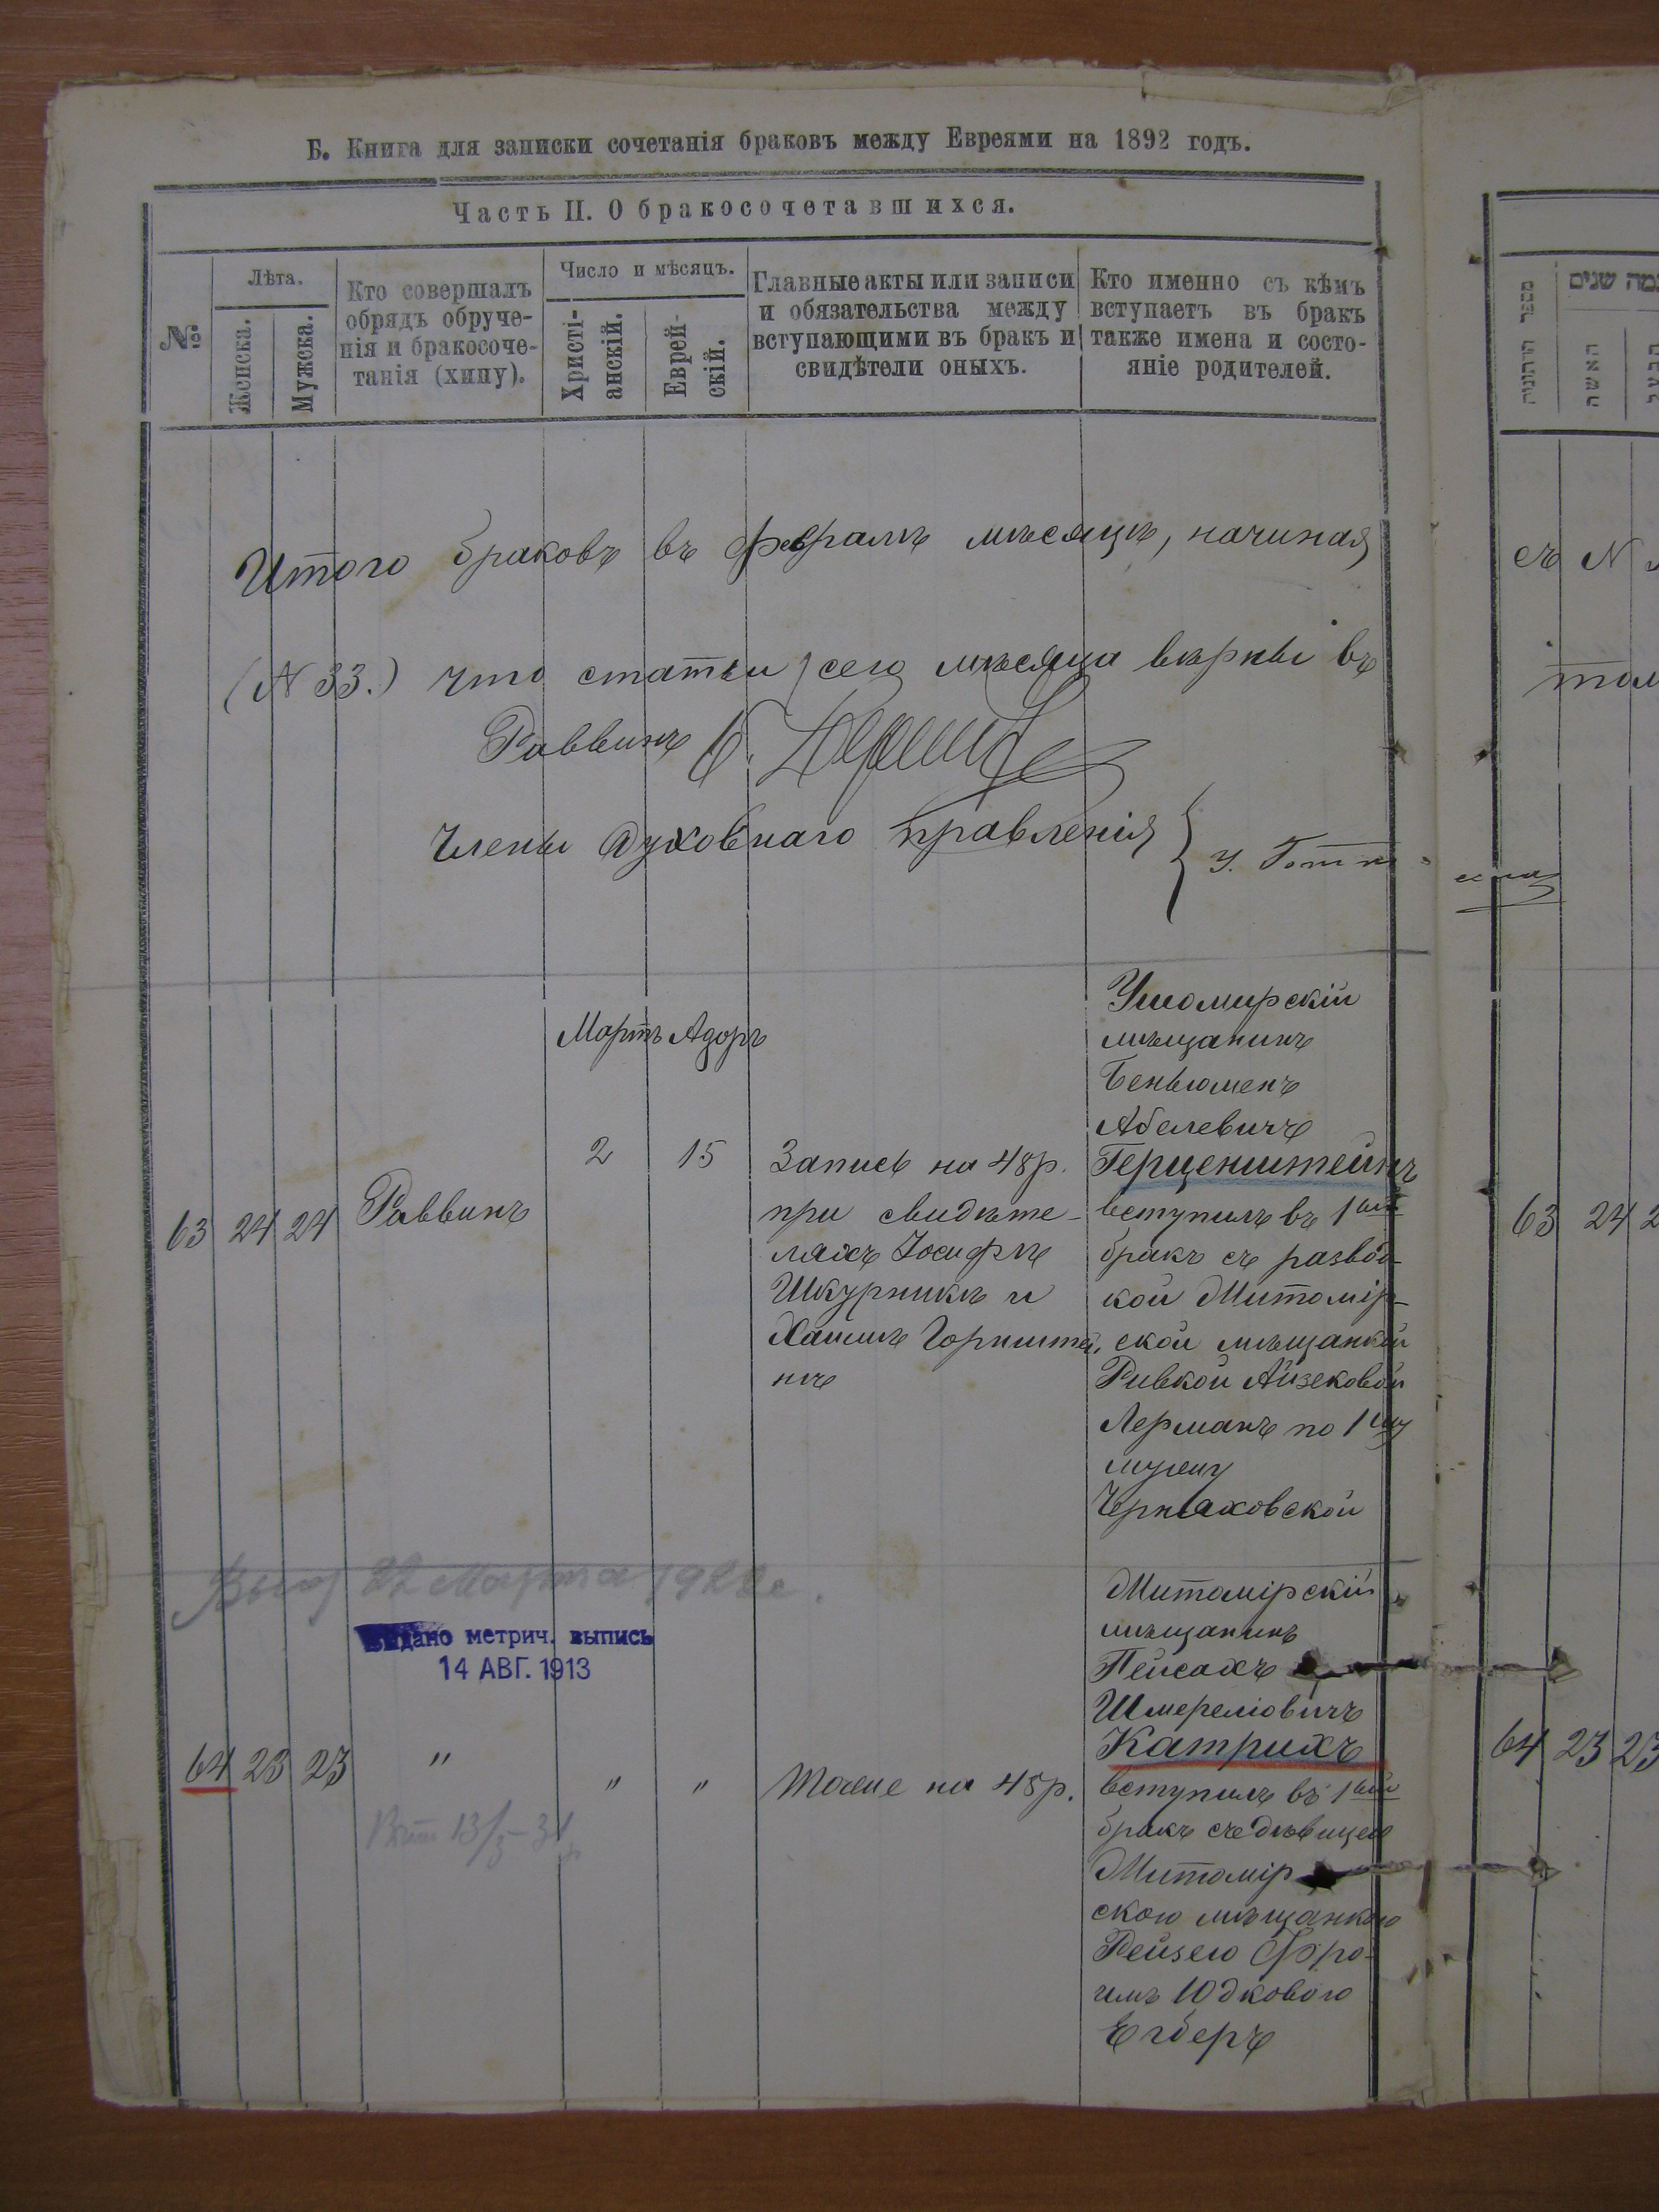 Б. Книга для записки сочетанія браковъ между Евреями на 1892 годъ.
Часть II. О бракосочетавшихся.
№
Лѣта.
Женска.
Мужска.
Кто совершалъ
обрядъ обруче-
нія и бракосоче-
танія (хипу).
Число и мѣсяцъ.
Христі-
анскій.
Еврей-
скій.
Главные акты или записи
и обязательства между
вступающими въ бракъ и
свидѣтели оныхъ.
Кто именно съ кѣмъ
вступаетъ въ бракъ
также имена и состо-
яніе родителей.
Итого браковъ въ февралѣ мѣсяцѣ, начиная
(N 33.) что статьи сего мѣсяца вѣрны въ
Раввинъ
Члены духовнаго правленія
Мартъ Адоръ
63 24 24 Раввинъ
2 15
Запись на 48 р.
при свидѣте-
ляхъ Іосифѣ
Шкурникѣ и
Хаимѣ Горнштей-
нѣ
Ушомирскій
мѣщанинъ
Беньюменъ
Абелевичъ
Герценштейнъ
вступилъ въ 1ый
бракъ съ развод-
кой Житомір-
ской мѣщанкой
Ривкой Айзековой
Лерманъ по 1му
мужу
Черняховской
22 Марта
Выдано метрич. выпись
14 АВГ. 1913
64 23 23 " " "
Тоже на 48 р.
Житомірскій
мѣщанинъ
Пейсахъ
Шмереліовичъ
Катрихъ
вступилъ въ 1ый
бракъ съ дѣвицею
Житомір
скою мѣщанкою
Рейзею Фро-
имъ Юдковою
Егберъ
съ N
63 24 2
64 23 23
מספר חתונות
כמה שנים
האשה
הבעל